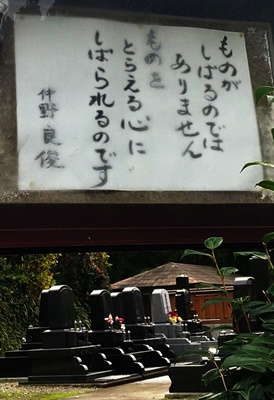 ものが
しばるのでは
ありません
ものを
とらえる心に
しばられるのです
仲野良俊